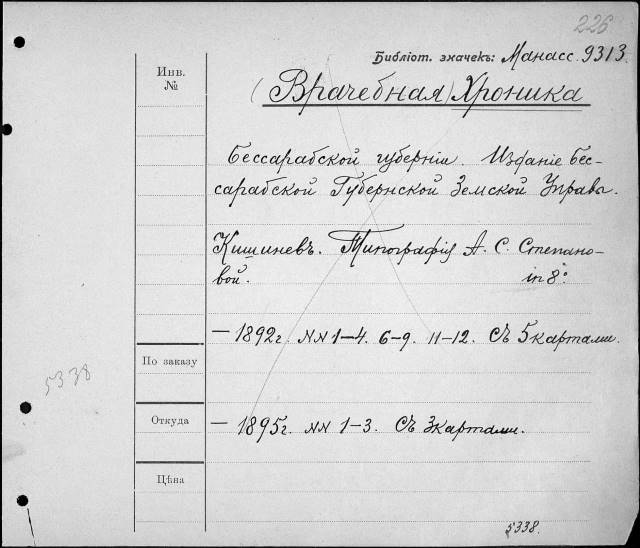 226
Библіот. значекъ: Манасс. 9313.
Инв. №
(Врачебная) Хроника
Бессарабской губерніи. Изданіе Бес-
сарабской Губернской Земской Управы.
Кишиневъ. Типографія А. С. Степано-
вой. in 8°.
— 1892г. NN 1–4. 6–9. 11–12. Съ 5 картами.
По заказу
5338
Откуда
— 1895г. NN 1–3. Съ 3 картами.
Цѣна
5338.